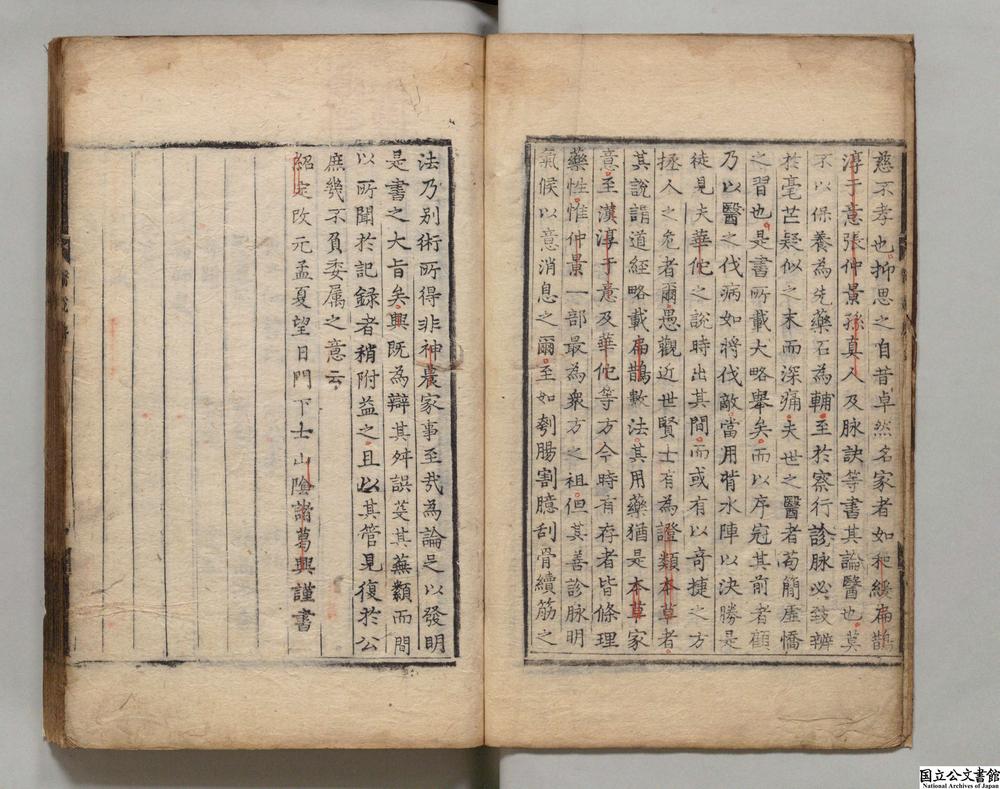 慈不孝也抑思之自昔卓然名家者如和緩扁鵲
淳于意張仲景孫真人及脉訣等書其論醫也莫
不以保養為先藥石為輔至於察行診脉必致辨
於毫芒疑似之末而深痛夫世之醫者苟簡虛憍
之習也是書所載大略舉矣而以序冠其前者顧
乃以醫之伐病如將伐敵當用背水陣以決勝是
徒見夫華佗之說時出其間而或有以奇捷之方
拯人之危者爾愚觀近世賢士有為證類本草者
其說謂道經略載扁鵲數法其用藥猶是本草家
意至漢淳于意及華佗等方今時有存者皆條理
藥性惟仲景一部最為衆方之祖但其善診脉明
氣候以意消息之爾至如刳腸割臆刮骨續筋之
法乃别術所得非神農家事至哉為論足以發明
是書之大旨矣興既為辯其舛誤芟其蕪纇而間
以所聞於記録者稍附益之且以其管見復於公
庶幾不負委属之意云
紹定改元孟夏望日門下士山陰諸葛興謹書
国立公文書館
National Archives of Japan